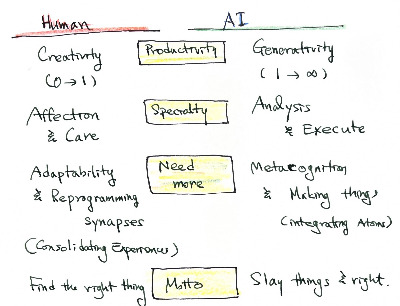 Human AI
Creativity Productivity Generativity
(0→1) (1→∞)
Affection Specialty Analysis
& Care & Execute
Adaptability Need Metacognition
& Reprogramming more & Making things
synapses (integrating Atoms)
(Consolidating Experiences)
Find the right thing Motto Slay things & right.